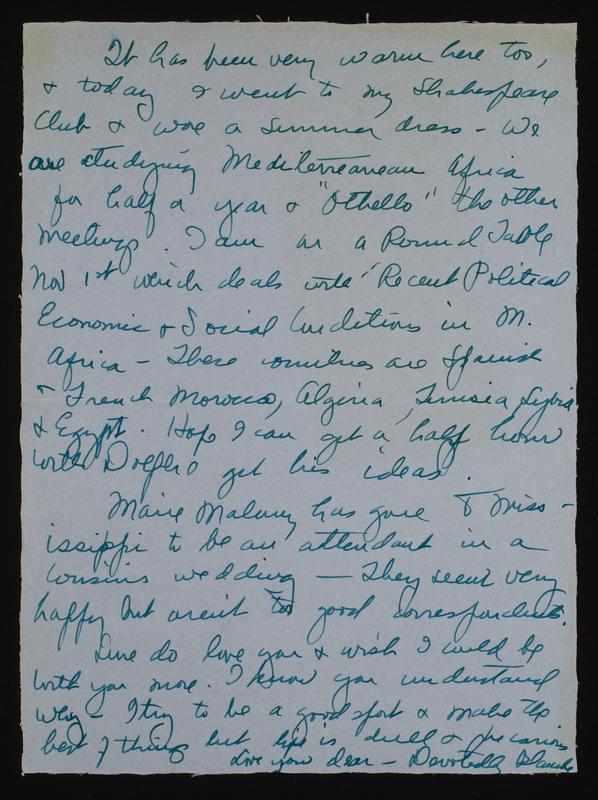 It has been very warm here too,
& today I went to my Shakespeare
Club & wore a summer dress - We
are studying Mediterranean Africa
for half a year & "Othello" the other
meetings. I am on a Round Table
Nov 1st which deals with "Recent Political
Economic & Social Conditions in M.
Africa - These countries are Spanish
& French Morocco, Algeria, Tunisia Lybia
& Egypt. Hope I can get a half hour
with & get his ideas.
Marie Maloney has gone to Miss-
issippi to be an attendant in a
cousins wedding - They seem very
happy but aren't too good correspondents.
Sure do love you & wish I could be
with you more. I know you understand
why - I try to be a good sport & make the
best of things but life is dull & precarious
Love you dear - Devotedly Blanche